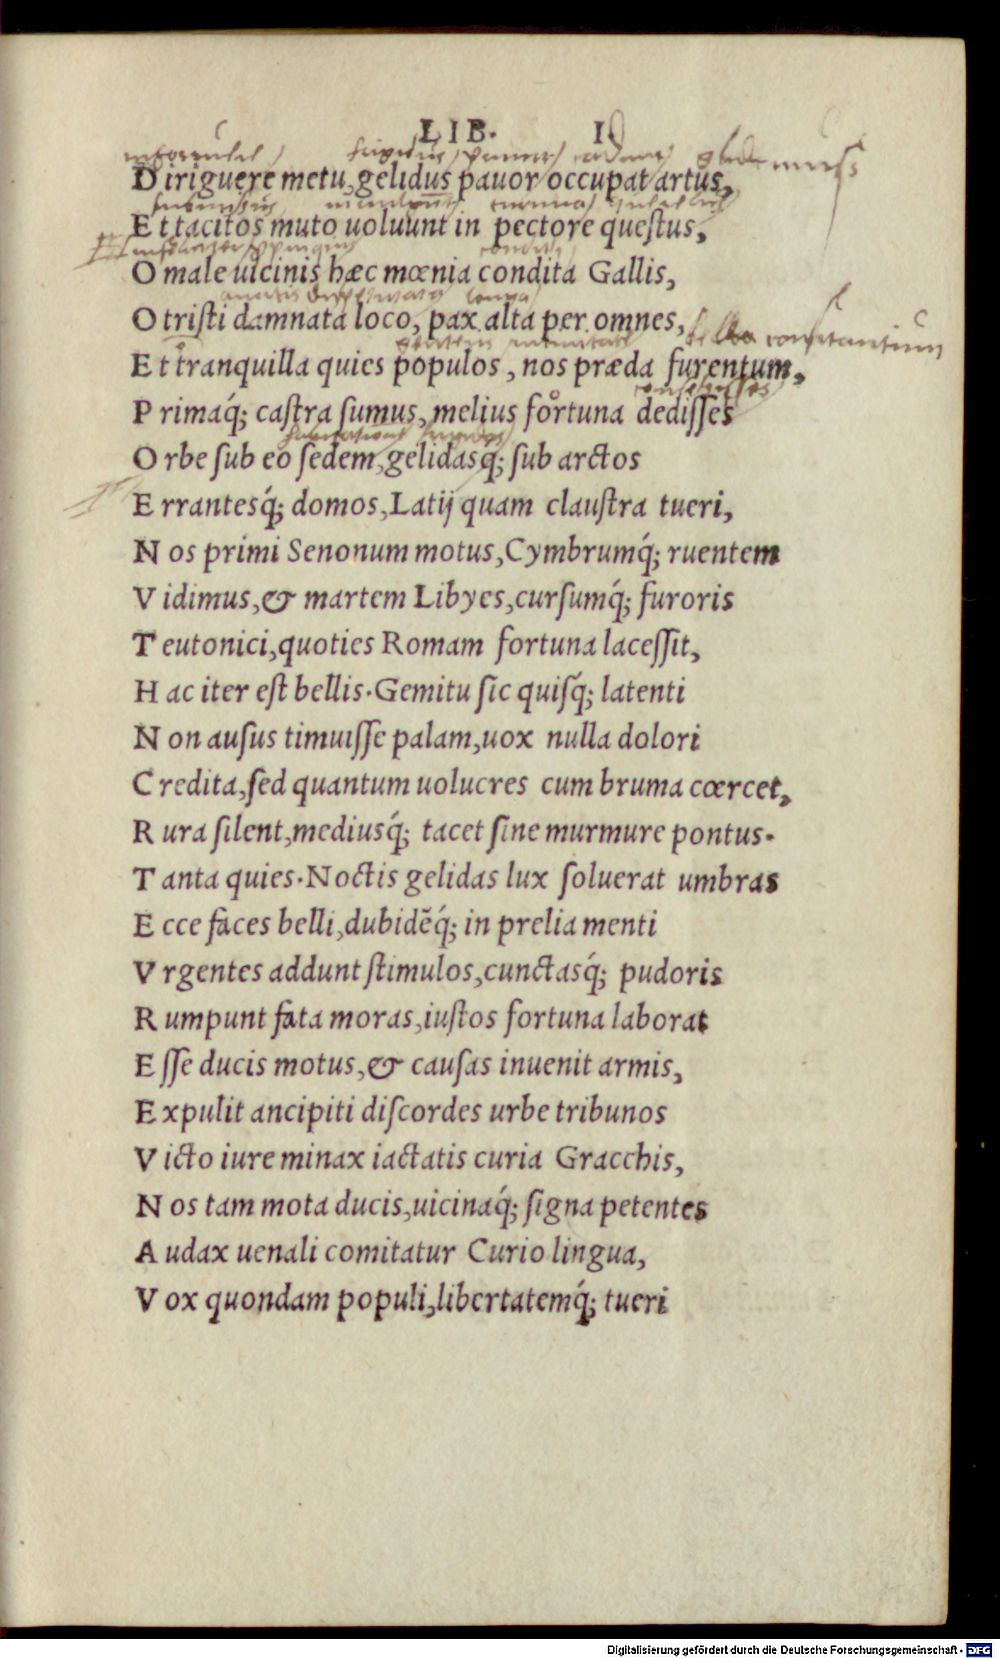 LIB. I
Diriguere metu, gelidus pauor occupat artus,
Et tacitos muto uoluunt in pectore queſtus,
O male uicinis hæc mœnia condita Gallis,
O triſti damnata loco, pax alta per omnes,
Et tranquilla quies populos, nos præda furentum,
Primaq́; caſtra ſumus, melius fortuna dediſſes
Orbe ſub eo ſedem, gelidasq́; ſub arctos
Errantesq́; domos, Latij quam clauſtra tueri,
Nos primi Senonum motus, Cymbrumq́; ruentem
Vidimus, & martem Libyes, curſumq́; furoris
Teutonici, quoties Romam fortuna laceſſit,
Hac iter eſt bellis. Gemitu ſic quiſq́; latenti
Non auſus timuiſſe palam, uox nulla dolori
Credita, ſed quantum uolucres cum bruma cœrcet,
Rura ſilent, mediusq́; tacet ſine murmure pontus.
Tanta quies. Noctis gelidas lux ſoluerat umbras
Ecce faces belli, dubidēq́; in prelia menti
Vrgentes addunt ſtimulos, cunctasq́; pudoris
Rumpunt fata moras, iuſtos fortuna laborat
Eſſe ducis motus, & cauſas inuenit armis,
Expulit ancipiti diſcordes urbe tribunos
Victo iure minax iactatis curia Gracchis,
Nos tam mota ducis, uicinaq́; ſigna petentes
Audax uenali comitatur Curio lingua,
Vox quondam populi, libertatemq́; tueri
Digitalisierung gefördert durch die Deutsche Forschungsgemeinschaft - DFG